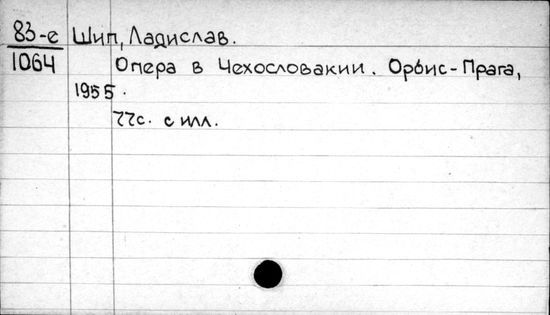 83-е Шип, Ладислав.
1064 Опера в Чехословакии. Орбис-Прага,
1955.
77с. с илл.